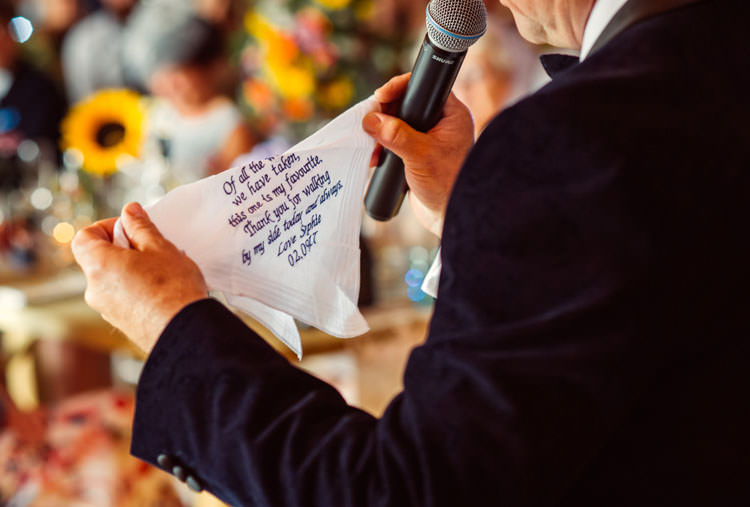 SHURE
Of all the
we have taken,
this one is my favourite.
Thank you for walking
by my side today and always.
Love Sophie